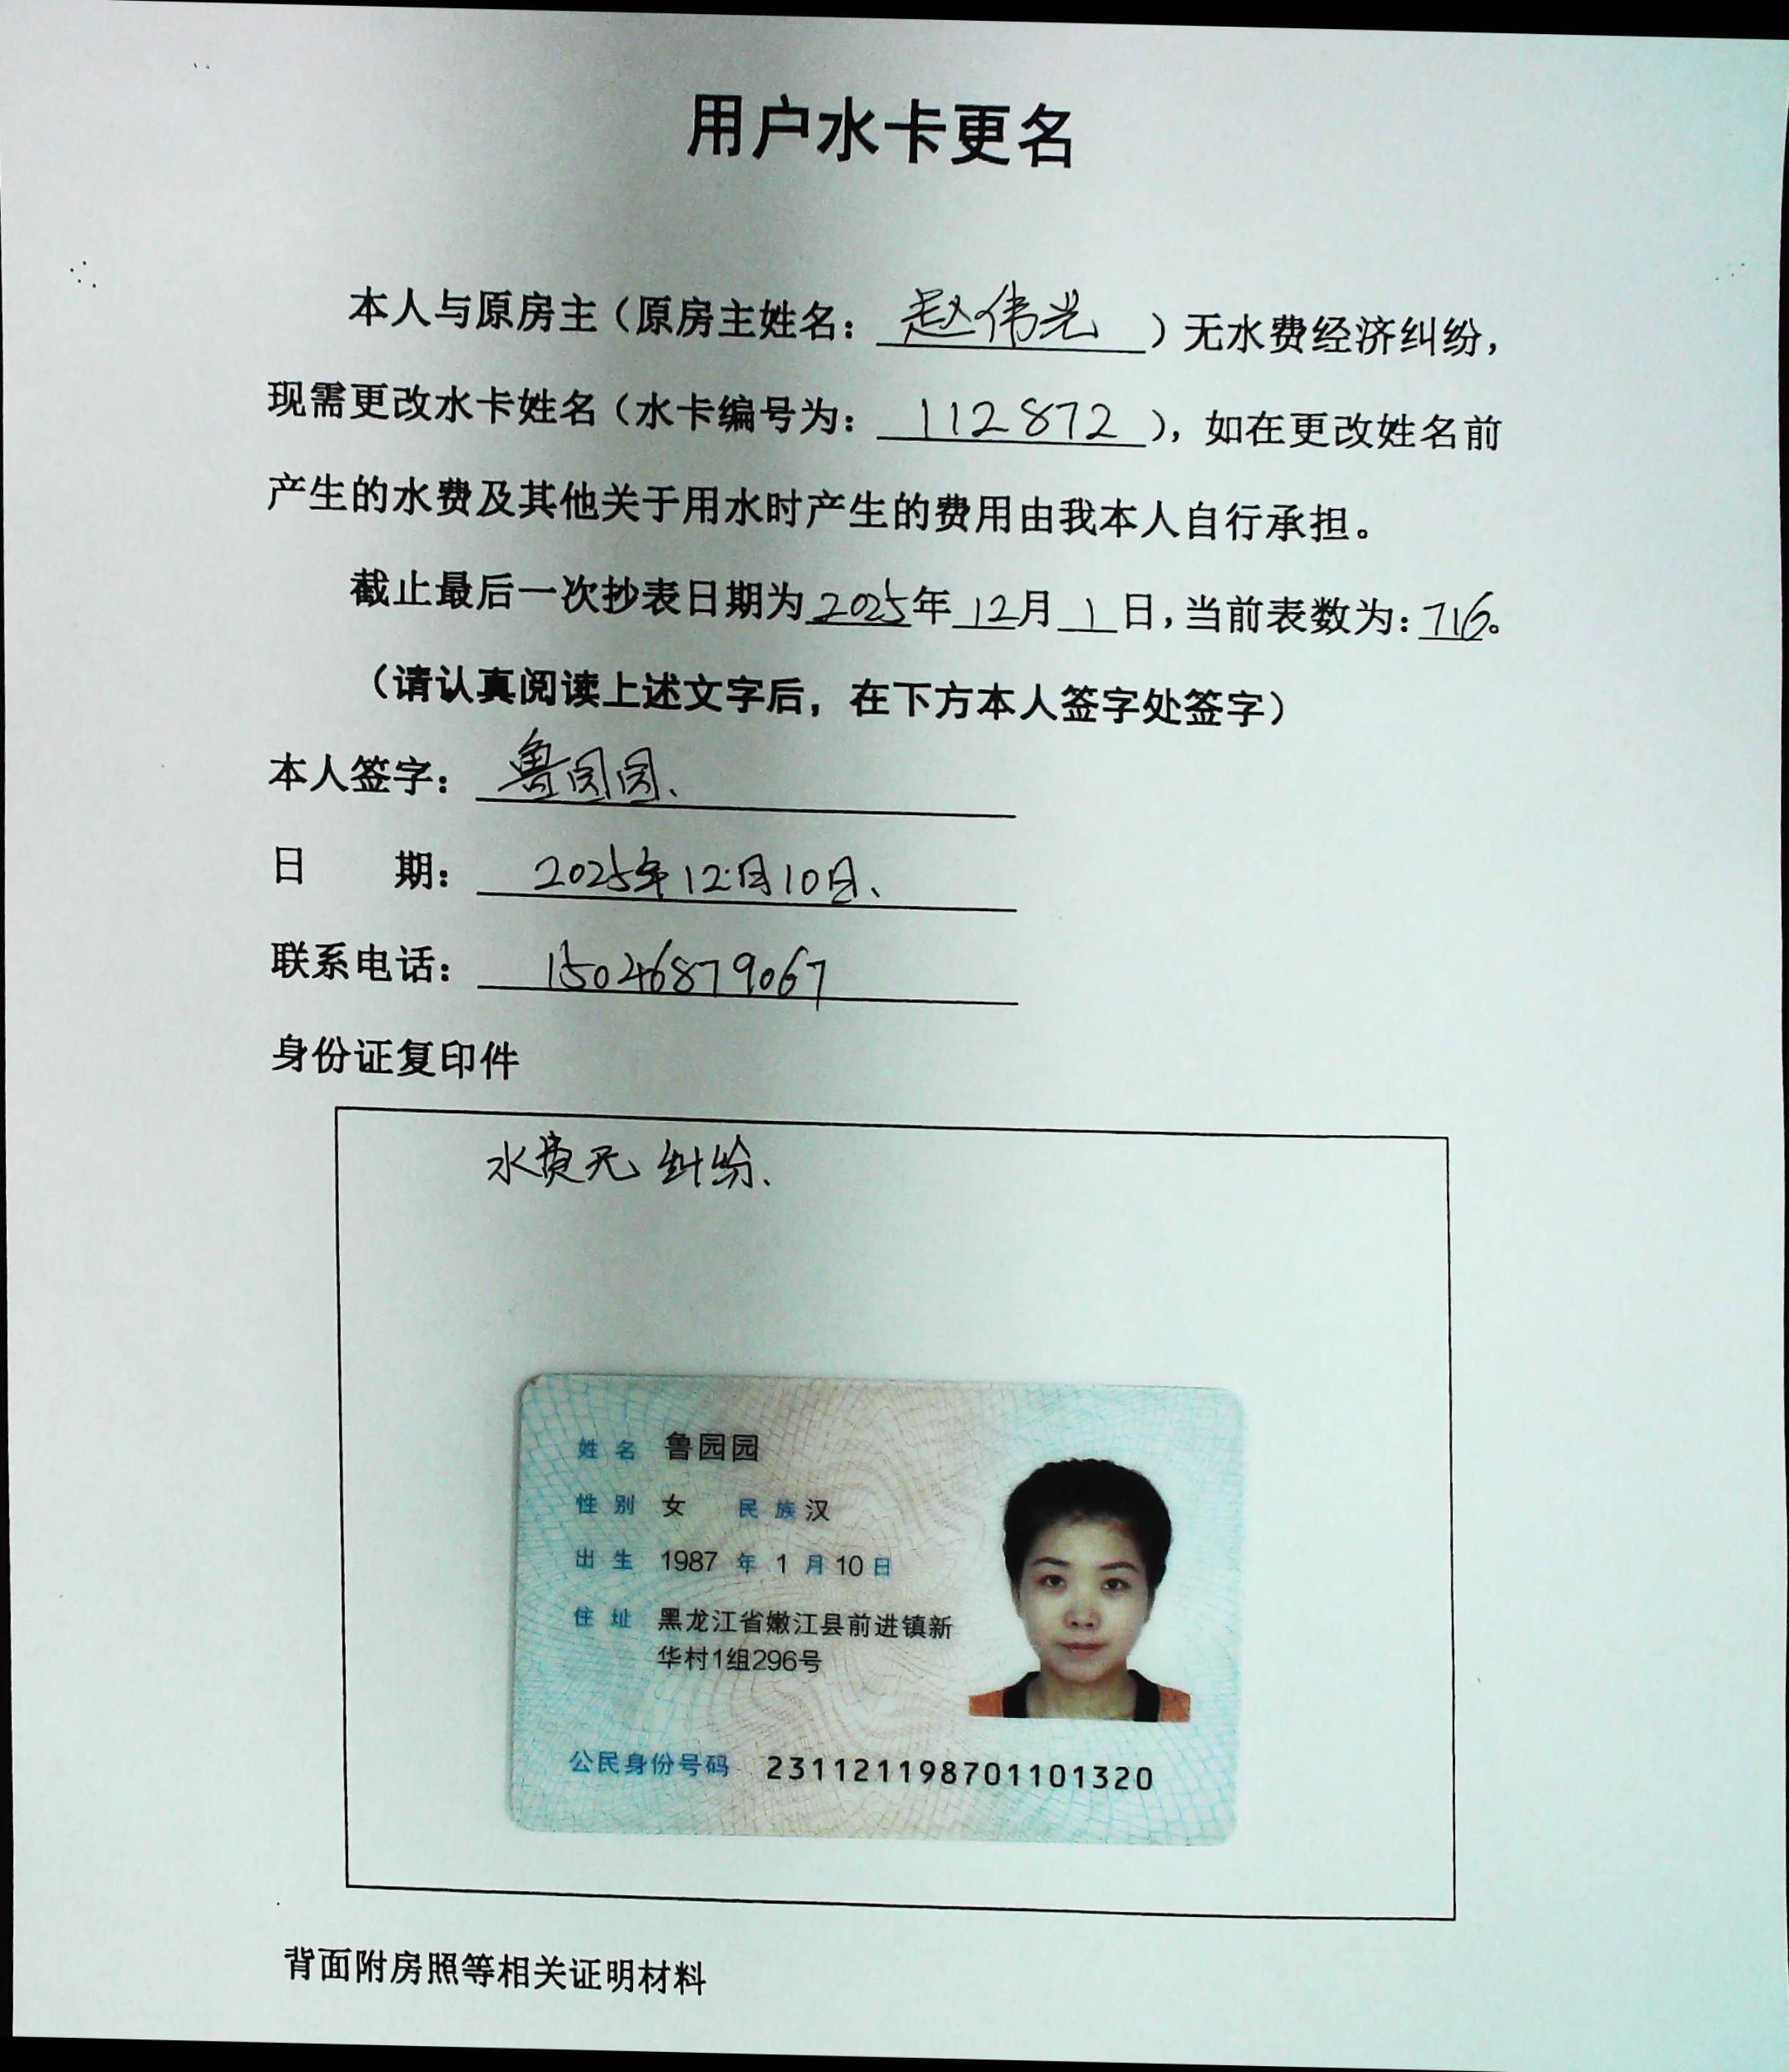 用户水卡更名
本人与原房主（原房主姓名：赵伟光）无水费经济纠纷，
现需更改水卡姓名（水卡编号为：112872），如在更改姓名前
产生的水费及其他关于用水时产生的费用由我本人自行承担。
截止最后一次抄表日期为2025年12月1日，当前表数为：716。
（请认真阅读上述文字后，在下方本人签字处签字）
本人签字：鲁园园、
日 期：2025年12月10日、
联系电话：15046879067
身份证复印件
水费无纠纷、
姓名 鲁园园
性别 女 民族 汉
出生 1987 年 1 月 10 日
住址 黑龙江省嫩江县前进镇新
华村1组296号
公民身份号码 231121198701101320
背面附房照等相关证明材料